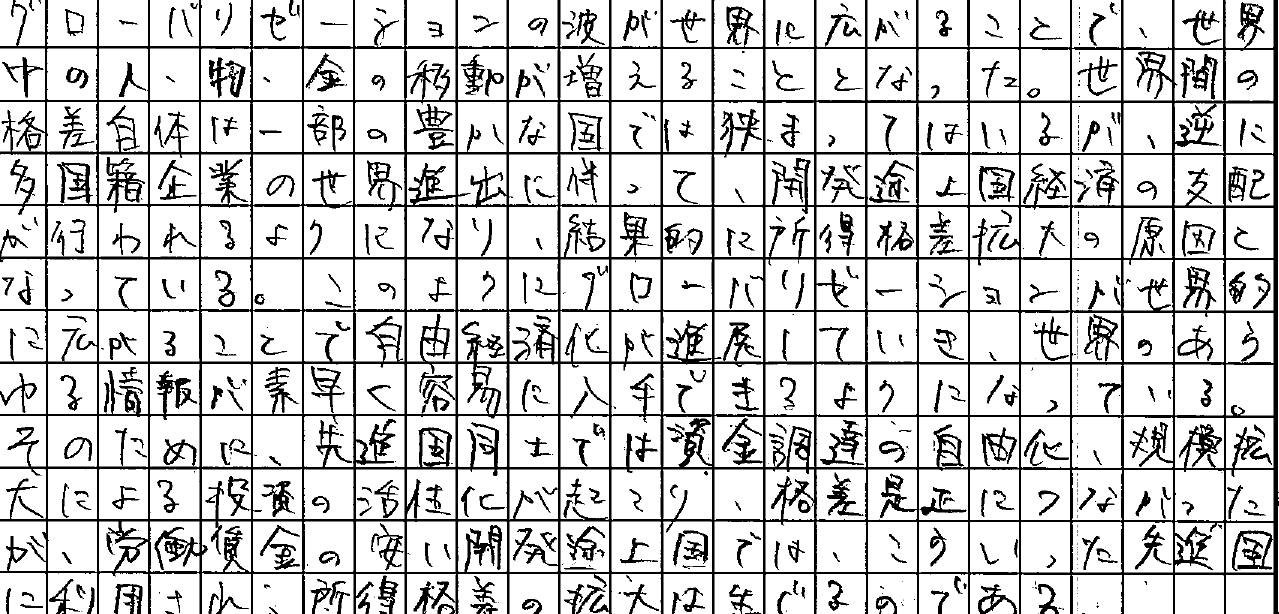 グローバリゼーションの波が世界に広がることで、世界
中の人、物、金の移動が増えることとなった。世界間の
格差自体は一部の豊かな国では狭まってはいるが、逆に
多国籍企業の世界進出に伴って、開発途上国経済の支配
が行われるようになり、結果的に所得格差拡大の原因と
なっている。このようにグローバリゼーションが世界的
に広がることで自由経済化が進展していき、世界のあら
ゆる情報が素早く容易に入手できるようになっている。
そのために、先進国同士では資金調達の自由化、規模拡
大による投資の活性化が起こり、格差是正につながった
が、労働賃金の安い開発途上国では、こういった先進国
に利用され、所得格差の拡大は生じるのである。